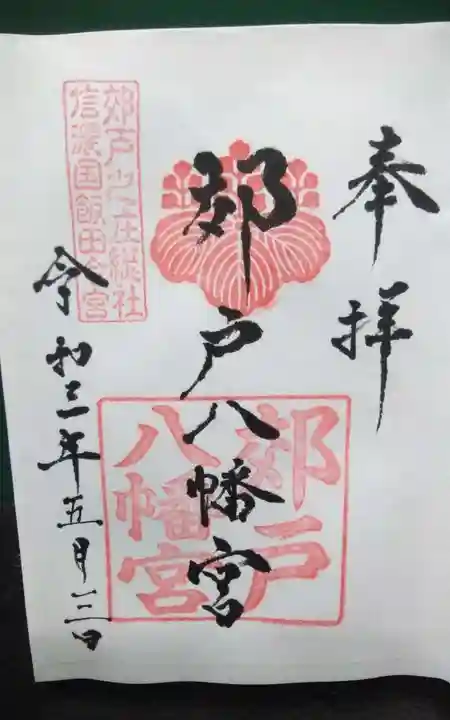 奉拝
郊戸八幡宮
郊戸八幡宮
郊戸少上庄総社
信濃国飯田今宮
令和三年五月三日